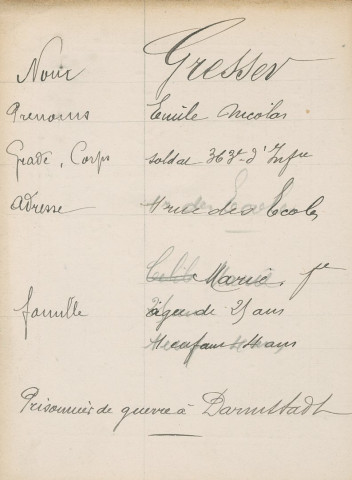 Nom Gresser
Prenoms Emile Nicolas
Grade, Corps soldat 363e d'Infie
Adresse rue des Ecoles
Marié, fe
famille âgée de 25 ans
1 enfant 4 ans
Prisonnier de guerre à Darmstadt